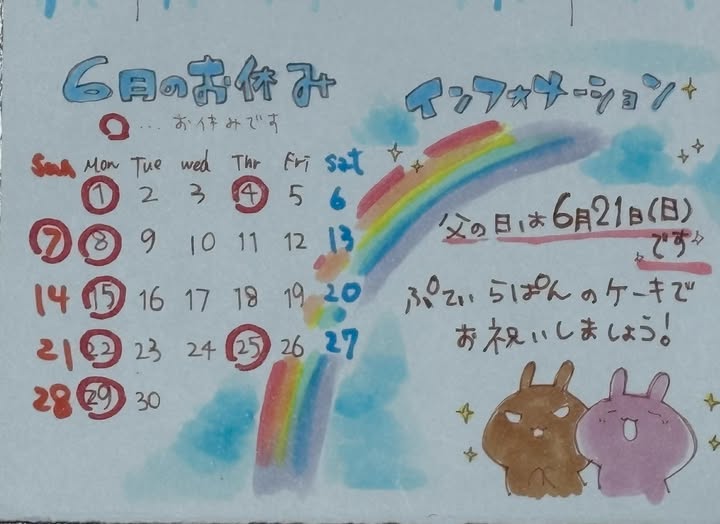 6月のお休み
○…お休みです
Sun Mon Tue wed Thr Fri sat
1 2 3 4 5 6
7 8 9 10 11 12 13
14 15 16 17 18 19 20
21 22 23 24 25 26 27
28 29 30
インフォメーション
父の日は6月21日(日)
です
ぷてぃらぱんのケーキで
お祝いしましょう!